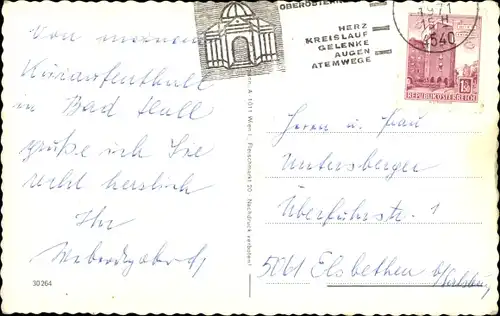 OBERÖSTERR
HERZ
KREISLAUF
GELENKE
AUGEN
ATEMWEGE
1971
4540
REPUBLIK ÖSTERREICH
Von meinem
Kuraufenthalt
in Bad Hall
grüße ich Sie
recht herzlich
Ihr
30264
A 1011 Wien I, Fleischmarkt 20 Nachdruck verboten!
Herrn u. Frau
Untersberger
Überfuhrstr. 1
5061 Elsbethen b/Salzburg